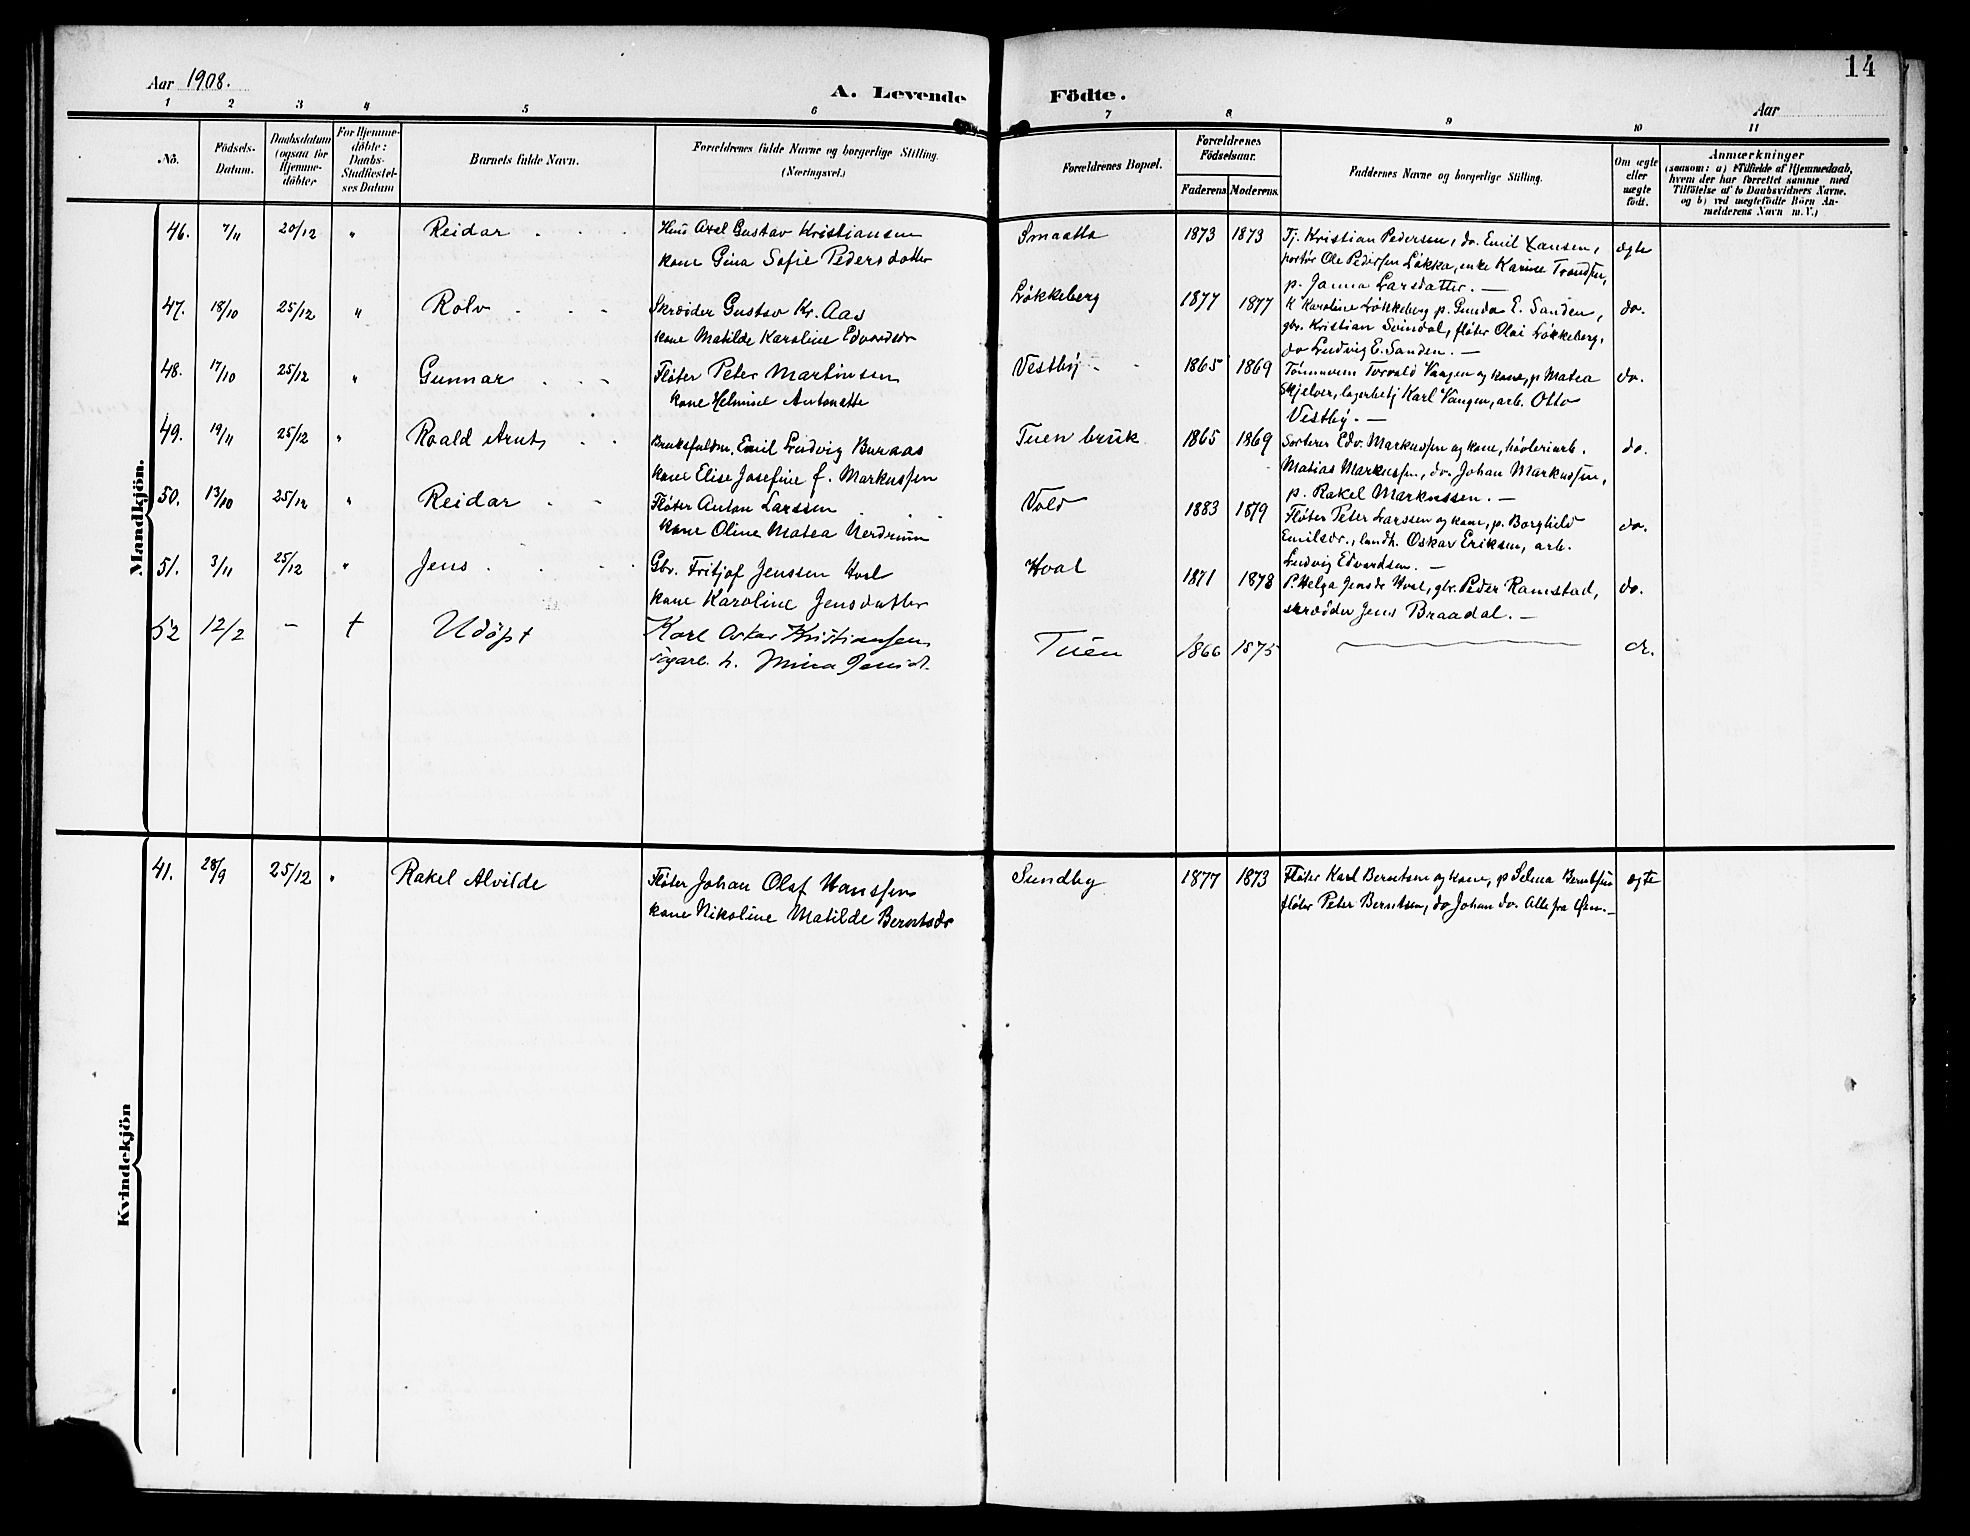 14
Aar 1908.
A. Levende Födte.
Aar
1 2 3 4 5 6 7 8 9 10 11
No.
Födsels-Datum.
Daabsdatum (ogsaa for Hjemmedöbte)
For Hjemmedöbte: Daabs-Stadfæstelses Datum
Barnets fulde Navn.
Forældrenes fulde Navne og borgerlige Stilling.
(Næringsvei.)
Forældrenes Bopæl.
Forældrenes Födselsaar.
Faderens Moderens
Faddernes Navne og borgerlige Stilling.
Om ægte eller uægte födt.
Anmærkninger
(saasom: a) i Tilfælde af Hjemmedaab,
hvem der har forrettet samme med
Tilföielse af to Daabsvidners Navne.
og b) ved uægtefödte Börn An-
melderens Navn m. V.)
Mandkjön.
46. 7/11 20/12 " Reidar Axel Gustav Kristiansen Smaatta 1873 1873 Tj. Kristian Pedersen, do. Emil Hansen, ægte
kone Gina Sofie Pedersdatter portör Ole Pedersen Løkka, enke Karine Trondsen,
p. Janna Larsdatter. —
47. 18/10 25/12 " Rolv Skræder Gustav Kr. Aas Løkkeberg 1877 1877 K Karoline Løkkeberg p. Gunda E. Sanden, do.
kone Matilde Karoline Edvardsdr gbr. Kristian Svindal, fløter Olai Løkkeberg,
do Ludvig E. Sanden. —
48. 17/10 25/12 " Gunnar Fløter Peter Martinsen Vestby 1865 1869 Tömmerm Torvald Vangen og kone, p. Matea do.
kone Helmine Antonette Skjelver, lagerbetj Karl Vangen, arb. Otto
Vestby. —
49. 19/11 25/12 " Roald Arnt Bruksfuldm. Emil Ludvig Buraas Tuen bruk 1865 1869 Sorterer Edv. Markussen og kone, høvleriarb. do.
kone Elise Josefine f. Markussen Matias Markussen, do. Johan Markussen,
p. Rakel Markussen. —
50. 13/10 25/12 " Reidar Fløter Anton Larssen Vold 1883 1879 Fløter Peter Larssen og kone, p. Borghild do.
kone Oline Matea Nerdrum Emilsdr., landh. Oskar Eriksen, arb.
Ludvig Edvardsen. —
51. 3/11 25/12 " Jens Gbr. Fritjof Jenssen Hval Hval 1871 1878 P. Helga Jensdr Hval, gbr. Peder Ramstad, do.
kone Karoline Jensdatter skrædder Jens Braadal. —
52 12/2 — † Udöpt Karl Oskar Kristiansen Tuen 1866 1875
h. Mina
Kvindekjön
41. 28/9 25/12 " Rakel Alvilde Fløter Johan Olaf Hanssen Sundby 1877 1873 Fløter Karl Berntsen og kone, p Selma Berntsen ægte
kone Nikoline Matilde Berntsdr fløter Peter Berntsen, do Johan do. Alle fra